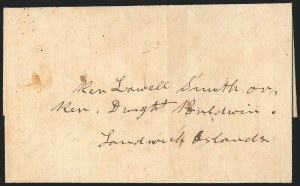 Rev Lowell Smith or,
Rev. Dwight Baldwin.
Sandwich Islands